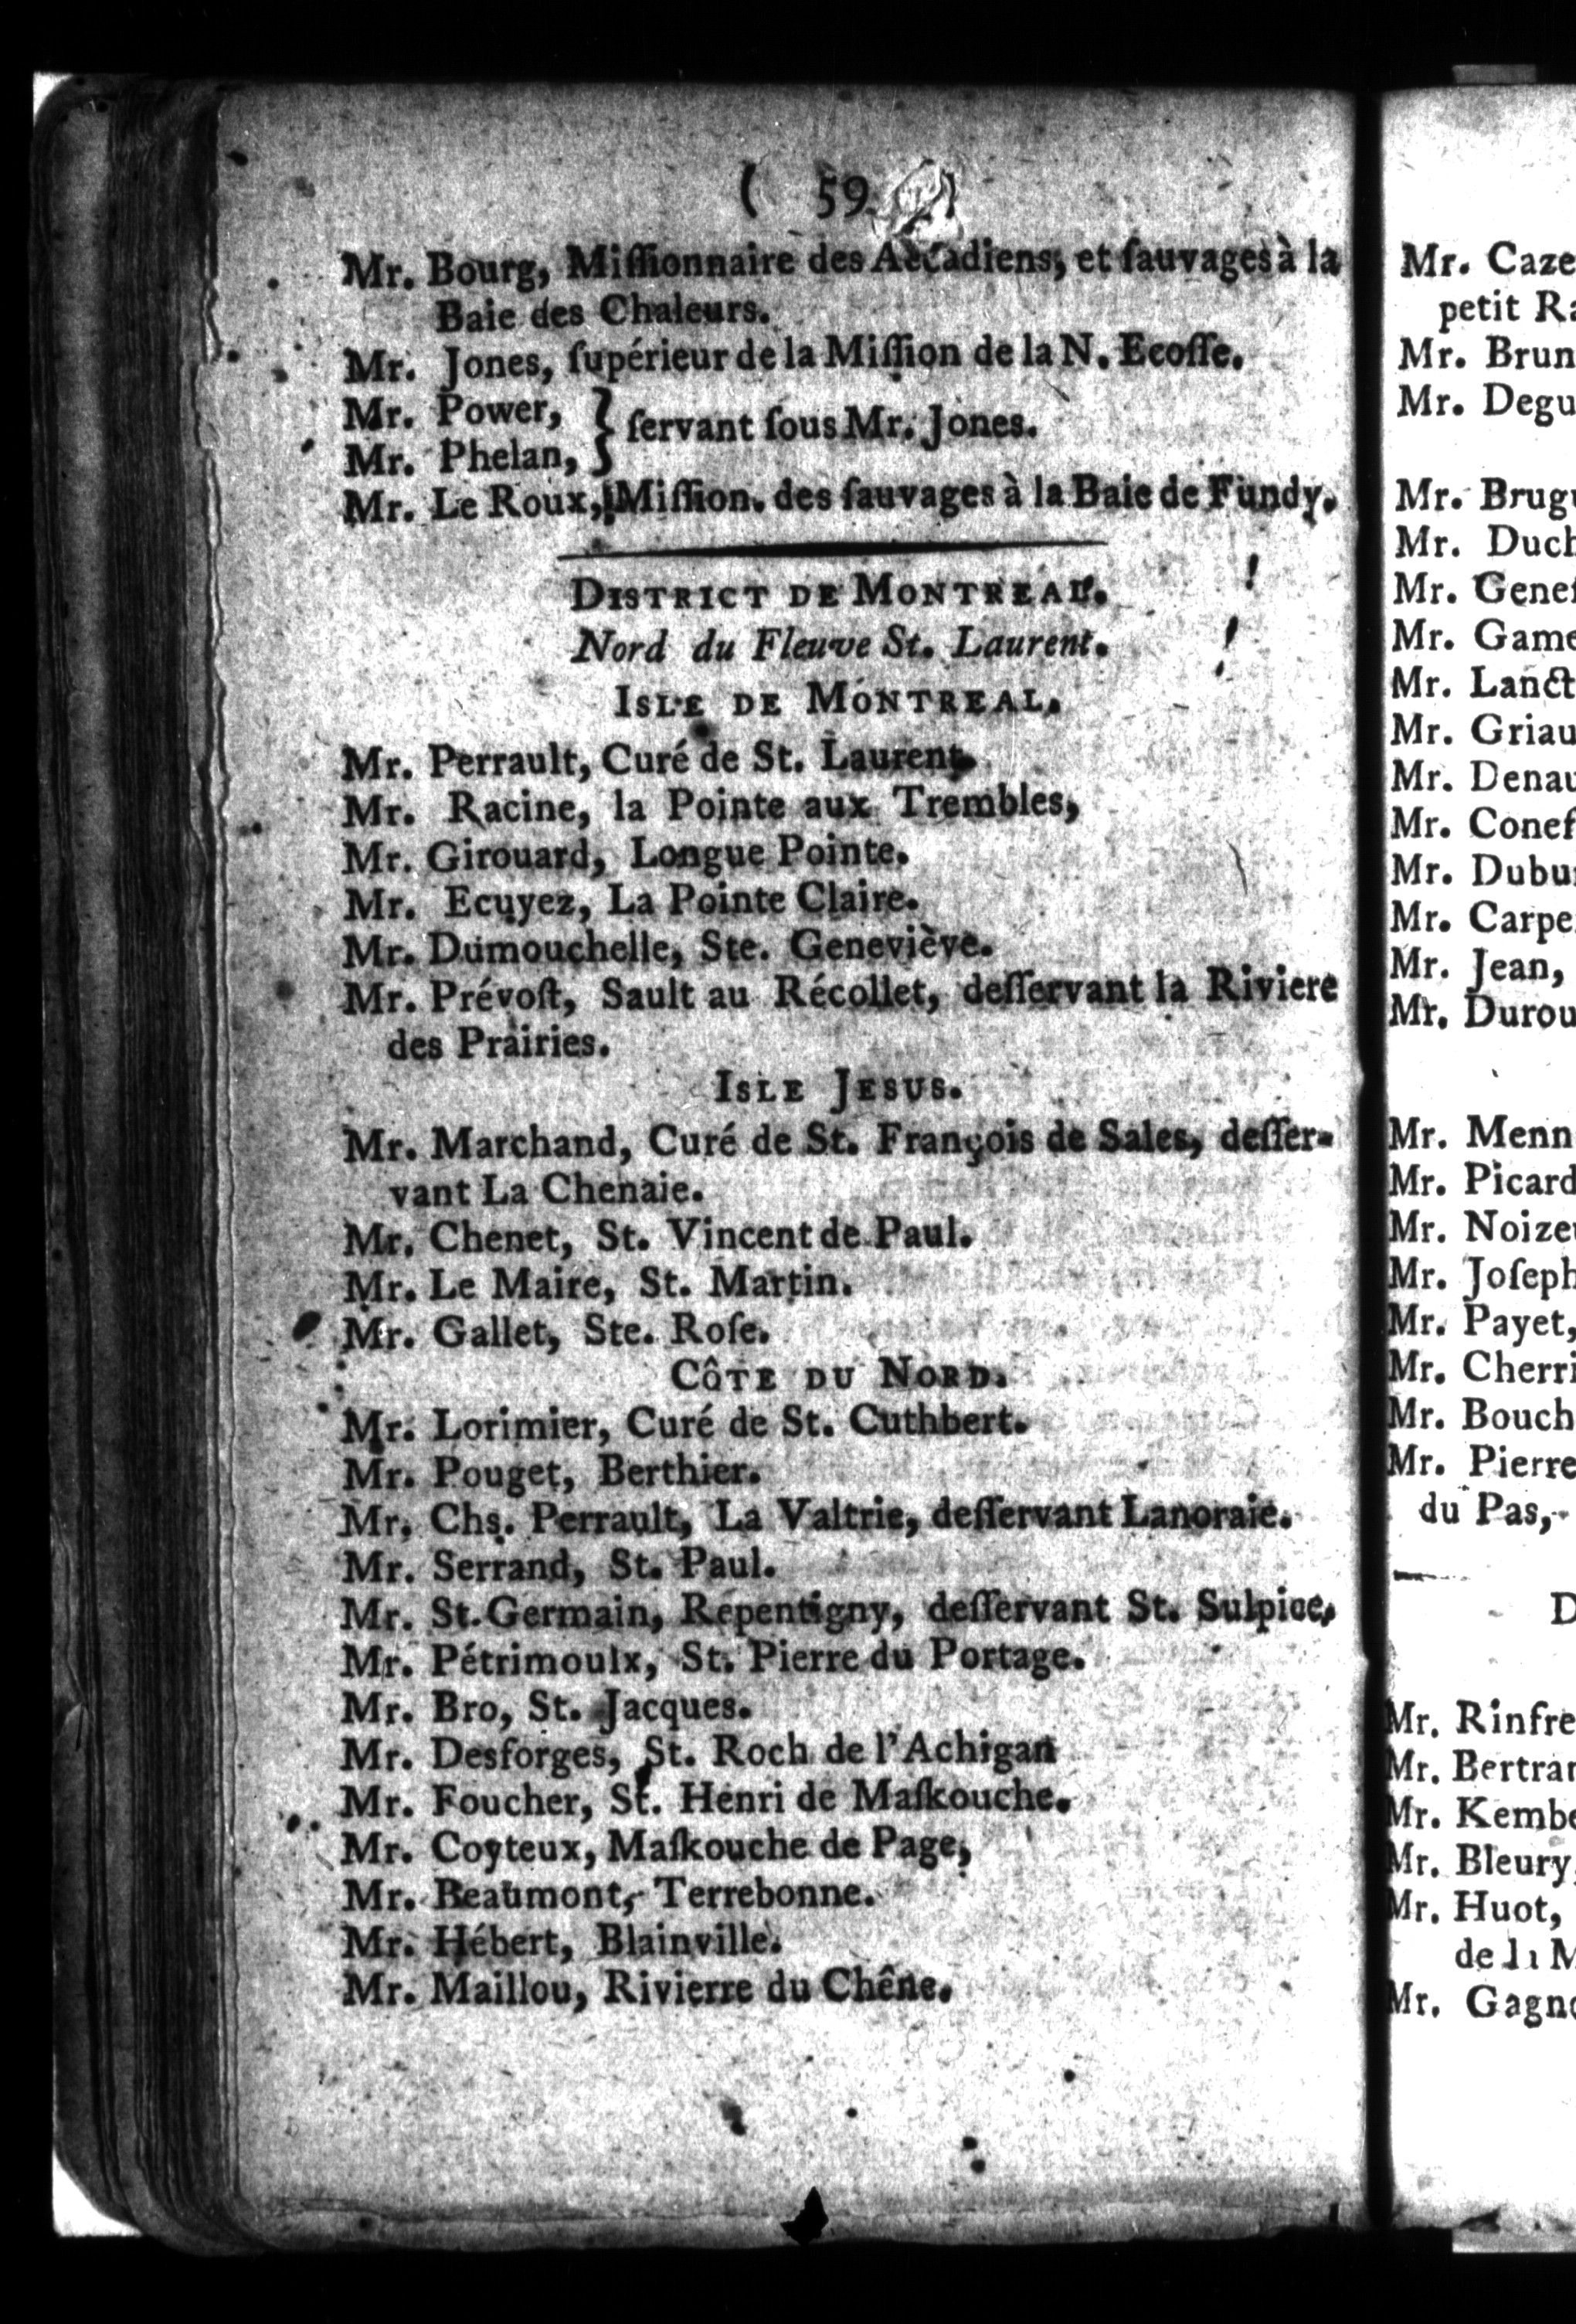 ( 59 )
Mr. Bourg, Miſſionnaire des Accadiens, et ſauvages à la
Baie des Chaleurs.
Mr. Jones, ſupérieur de la Miſſion de la N. Ecoſſe.
Mr. Power, } ſervant ſous Mr. Jones.
Mr. Phelan,
Mr. Le Roux, Miſſion. des ſauvages à la Baie de Fundy.
DISTRICT DE MONTREAL.
Nord du Fleuve St. Laurent.
ISLE DE MONTREAL.
Mr. Perrault, Curé de St. Laurent.
Mr. Racine, la Pointe aux Trembles,
Mr. Girouard, Longue Pointe.
Mr. Ecuyez, La Pointe Claire.
Mr. Dumouchelle, Ste. Geneviève.
Mr. Prévoſt, Sault au Récollet, deſſervant la Riviere
des Prairies.
ISLE JESUS.
Mr. Marchand, Curé de St. François de Sales, deſſer-
vant La Chenaie.
Mr. Chenet, St. Vincent de Paul.
Mr. Le Maire, St. Martin.
Mr. Gallet, Ste. Roſe.
CÔTE DU NORD.
Mr. Lorimier, Curé de St. Cuthbert.
Mr. Pouget, Berthier.
Mr. Chs. Perrault, La Valtrie, deſſervant Lanoraie.
Mr. Serrand, St. Paul.
Mr. St. Germain, Repentigny, deſſervant St. Sulpice,
Mr. Pétrimoulx, St. Pierre du Portage.
Mr. Bro, St. Jacques.
Mr. Desforges, St. Roch de l'Achigan
Mr. Foucher, St. Henri de Maſkouche.
Mr. Coyteux, Maſkouche de Page,
Mr. Beaumont, Terrebonne.
Mr. Hébert, Blainville.
Mr. Maillou, Rivierre du Chêne.
Mr. Caze
petit Ra
Mr. Brun
Mr. Degu
Mr. Brugu
Mr. Duch
Mr. Geneſ
Mr. Game
Mr. Lanct
Mr. Griau
Mr. Denau
Mr. Coneſ
Mr. Dubu
Mr. Carpe
Mr. Jean,
Mr. Durou
Mr. Menn
Mr. Picard
Mr. Noize
Mr. Joſeph
Mr. Payet,
Mr. Cherri
Mr. Bouch
Mr. Pierre
du Pas,
D
Mr. Rinfre
Mr. Bertran
Mr. Kembe
Mr. Bleury,
Mr. Huot,
de la M
Mr. Gagno